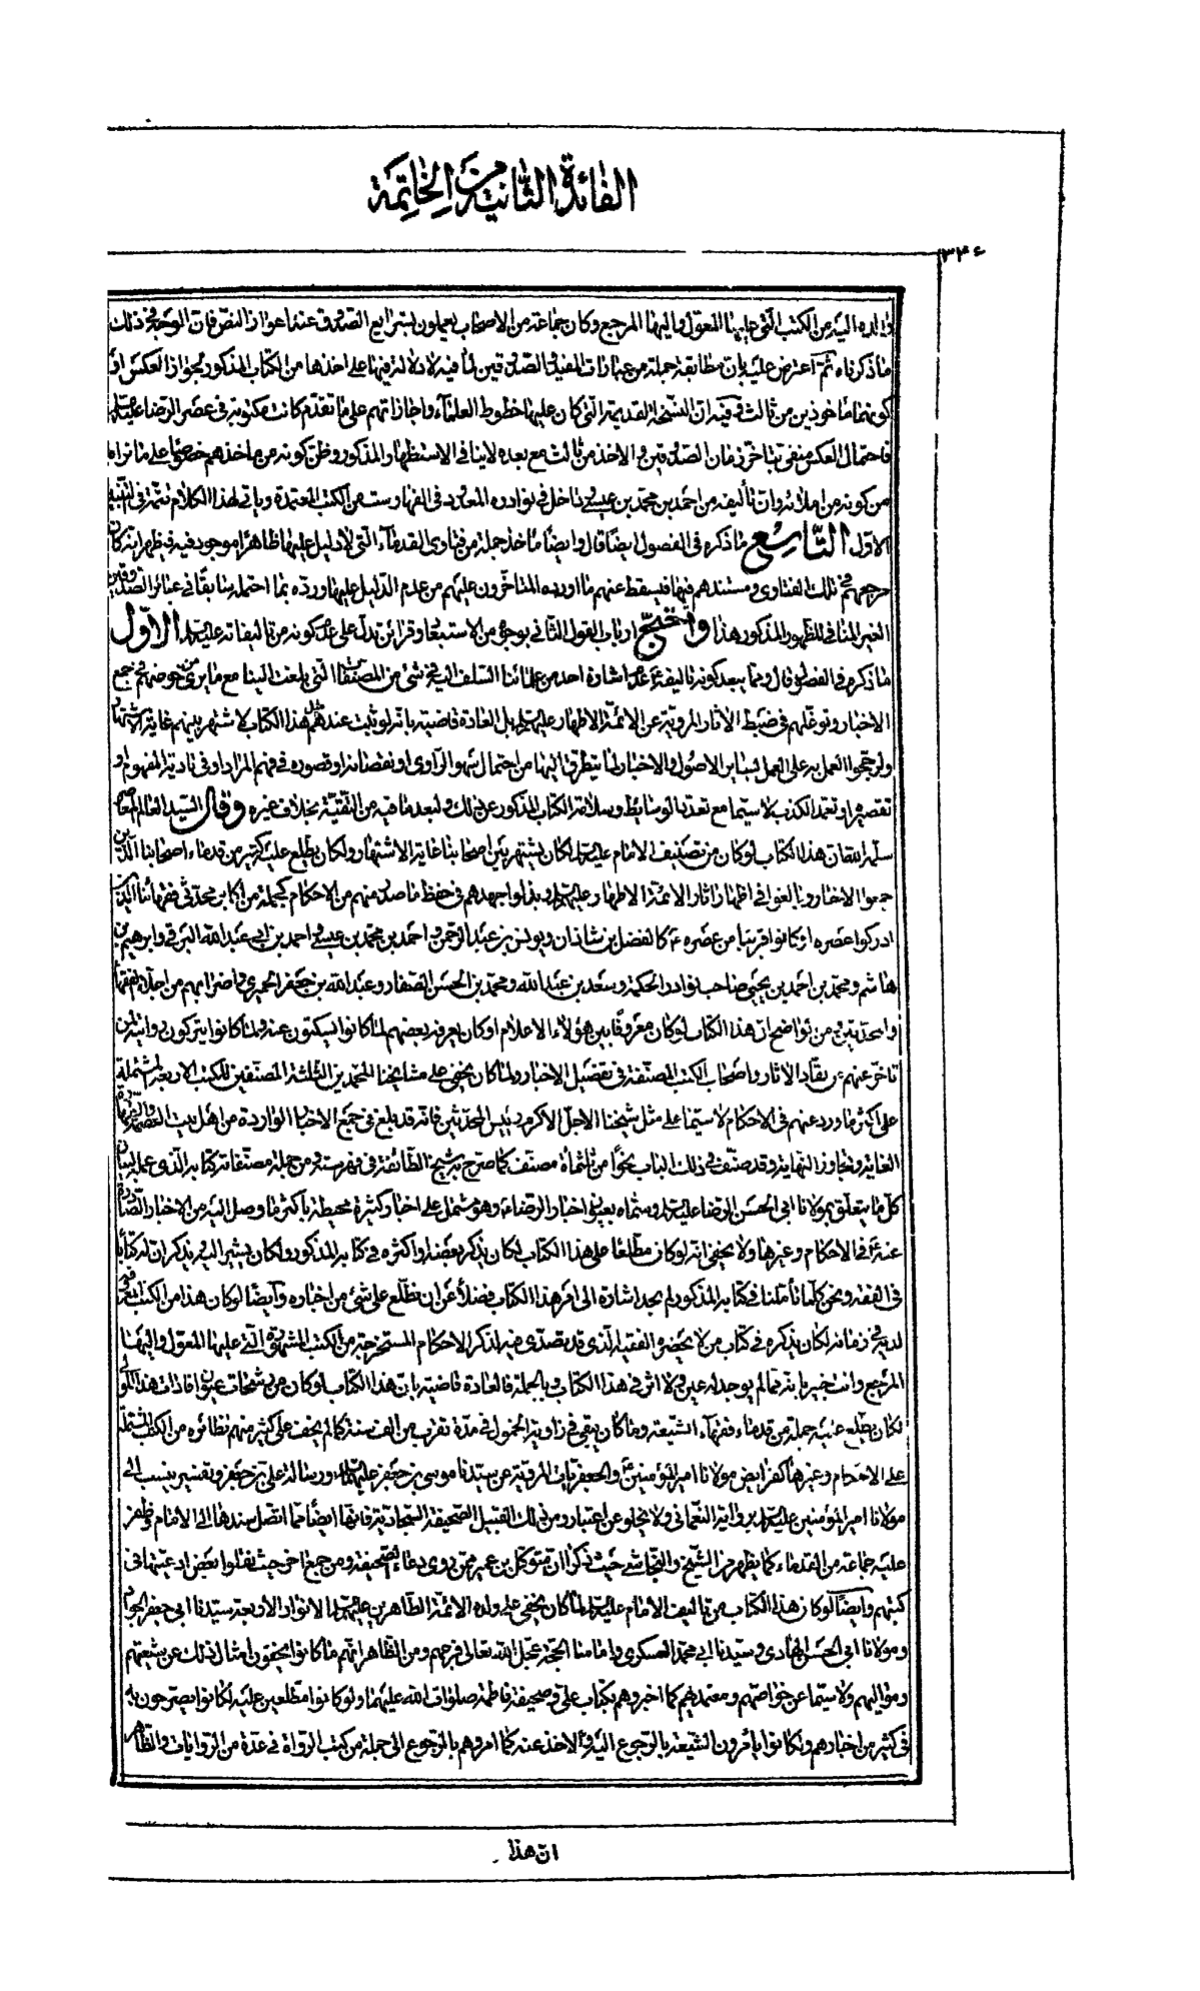 الفائدة الثانية من الخاتمة
٣٤٦
والده اليه من الكتب التي عليها المعول واليها المرجع وكان جماعة من الاصحاب يعملون بشرايع الصدوق عند اعواز النص فان الوجه في ذلك
ما ذكرناه ثم اعترض عليه بان مطابقة جملة من عبارات المفيد والصدوقين لما فيه لا دلالة فيها على اخذها من الكتاب المذكور لجواز العكس او
كونهما ماخوذين من ثالث وفيه ان النسخة القديمة التي كان عليها خطوط العلماء واجازاتهم على ما تقدم كانت مكتوبة في عصر الرضا عليه السلام
فاحتمال العكس منفي بتاخر زمان الصدوقين والاخذ من ثالث مع بعده لا ينافي الاستظهار المذكور وظن كونه من ماخذهم خصوصا على ما نراه
من كونه من املائه وان تأليفه من احمد بن محمد بن عيسى داخل في نوادره المعدود في الفهارست من الكتب المعتمدة وياتي لهذا الكلام تتمة في التنبيه
الاول التاسع ما ذكره في الفصول ايضا قال وايضا ماخذ جملة من فتاوى القدماء التي لا دليل عليها ظاهرا موجود فيه فيظهر انه كان
مرجعهم في تلك الفتاوى ومستندهم فيها فيسقط عنهم ما اورده المتاخرون عليهم من عدم الدليل عليها ورده بما احتمله سابقا في عبائر الصدوقين
الغير المنافي للظهور المذكور هذا واحتج ارباب القول الثاني بوجوه من الاستبعاد وقرائن تدل على عدم كونه من تاليفاته عليه السلام الاول
ما ذكره في الفصول قال ومما يبعد كونه تاليفه ع عدم اشارة احد من علمائنا السلف اليه في شئ من المصنفات التي بلغت الينا مع ما يرى من خوضهم في جمع
الاخبار وتوغلهم في ضبط الاثار المروية عن الائمة الاطهار عليهم السلام بل العادة قاضية بانه لو ثبت عندهم مثل هذا الكتاب لاشتهر بينهم غاية الاشتهار
ولرجحوا العمل به على العمل بسائر الاصول والاخبار لما يتطرق اليها من احتمال سهو الراوي او نقصانه او قصوره في فهم المراد او في تادية المفهوم او
تقصيره او تعمد الكذب لا سيما مع تعدد الوسائط وسلامة الكتاب المذكور عن ذلك ولبعد ما فيه عن التقية بخلاف غيره وقال السيد العالم المعاصر
سلمه الله ان هذا الكتاب لو كان من تصنيف الامام عليه السلام لكان يشتهر بين اصحابنا غاية الاشتهار ولكان يطلع عليه كثير من قدماء اصحابنا الذين
جمعوا الاخبار وبالغوا في اظهار اثار الائمة الاطهار عليهم السلام وبذلوا جهدهم في حفظ ما صدر منهم من الاحكام كجملة من اكابر محدثي فقهائنا الذين
ادركوا عصره او كانوا قريبا من عصره ع كالفضل بن شاذان ويونس بن عبد الرحمن واحمد بن محمد بن عيسى واحمد بن ابي عبد الله البرقي وابراهيم بن
هاشم ومحمد بن احمد بن يحيى صاحب نوادر الحكمة وسعد بن عبد الله ومحمد بن الحسن الصفار وعبد الله بن جعفر الحميري واضرابهم من اجلاء الفقهاء
والمحدثين ومن الواضح ان هذا الكتاب لو كان معروفا بين هؤلاء الاعلام او كان يعرفه بعضهم لما كانوا يسكتون عنه ولما كانوا يتركون روايته لمن
تاخر عنهم من نقاد الاثار واصحاب الكتب المصنفة في تفصيل الاخبار ولما كان يخفى على مشايخنا المحمدين الثلثة المصنفين للكتب الاربعة المشتملة
على اكثر ما ورد عنهم في الاحكام لا سيما على مثل شيخنا الاجل الاكرم رئيس المحدثين فانه قد بلغ في جمع الاخبار الواردة من اهل بيت العصمة والطهارة
الغاية وتجاوز النهاية وقد صنف في ذلك الباب نحوا من ثلثمأة مصنف كما صرح به شيخ الطائفة في فهرسته ومن جملة مصنفاته كتابه الذي عمله لبيان
كل ما يتعلق بمولانا ابي الحسن الرضا عليه السلام وسماه بعيون اخبار الرضا ع وهو مشتمل على اخبار كثيرة محيطة باكثر ما وصل اليه من الاخبار الصادرة
عنه ع في الاحكام وغيرها ولا يخفى انه لو كان مطلعا على هذا الكتاب لكان يذكر بعضه او اكثره في كتابه المذكور ولكان يشير اليه ويذكر ان له كتابا
في الفقه ونحن كلما تأملنا في كتابه المذكور لم نجد اشارة الى امر هذا الكتاب فضلا عن ان نطلع على شئ من اخباره وايضا لو كان هذا من الكتب المعروفة
لديه في زمانه لكان يذكره في كتاب من لا يحضره الفقيه الذي قد تصدى فيه لذكر الاحكام المستخرجة من الكتب المشهورة التي عليها المعول واليها
المرجع وانت خبير بانه مما لم يوجد له عين ولا اثر في هذا الكتاب وبالجملة فالعادة قاضية بان هذا الكتاب لو كان من رشحات عيون افادات هذا المولى
لكان يطلع عليه جملة من قدماء فقهاء الشيعة وما كان يبقى في زاوية الخمول في مدة تقرب من الف سنة كما لم يخف على كثير منهم نظائره من الكتب المشتملة
على الاحكام وغيرها كفرايض مولانا امير المؤمنين ع والجعفريات المروية عن سيدنا موسى بن جعفر عليهما السلام ورسالة علي بن جعفر وتفسير ينسب الى
مولانا امير المؤمنين عليه السلام برواية النعماني ولا يخلو عن اعتبار ومن ذلك القبيل الصحيفة السجادية فانها ايضا مما اتصل سندها الى الامام وظفر
عليه جماعة من القدماء كما يظهر من الشيخ والنجاشي حيث ذكرا ان متوكل بن عمير ممن روى دعاء الصحيفة ومن جمع اخر حيث نقلوا بعض ادعيتها في
كتبهم وايضا لو كان هذا الكتاب من تاليف الامام عليه السلام لما كان يخفى على ولده الائمة الطاهرين عليهم السلام الانوار الاربعة سيدنا ابي جعفر الجواد
ومولانا ابي الحسن الهادي وسيدنا ابي محمد العسكري وامامنا الحجة عجل الله تعالى فرجهم ومن الظاهر انهم ما كانوا يخفون امثال ذلك عن شيعتهم
ومواليهم ولا سيما عن خواصهم ومعتمديهم كما اخبروهم بكتاب علي وصحيفة فاطمة صلوات الله عليهما ولو كانوا مطلعين عليه لكانوا يصرحون به
في كثير من اخبارهم ولكانوا يأمرون الشيعة بالرجوع اليه والاخذ عنه كما امروهم بالرجوع الى جملة من كتب الرواة في عدة من الروايات والظاهر
ان هذا